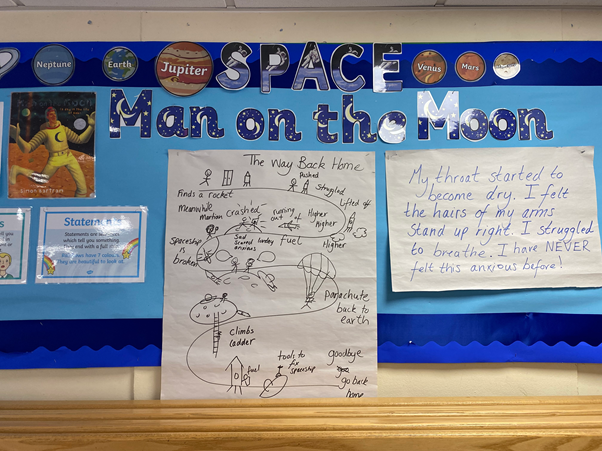 SPACE
Neptune
Earth
Jupiter
Venus
Mars
Man on the Moon
Simon Bartram
Statements
Statements are
which tell you something.
end with a full
They are beautiful to look at
The Way Back Home
Pushed
Finds a rocket
Struggled
Lifted off
Meanwhile
Martian
crashed
running
out of
fuel
Higher
higher
Higher
Spaceship
is
broken
Sad
Scared
anxious
lonely
parachute
back to
earth
climbs
ladder
fuel
tools to
fix
spaceship
goodbye
go back
home
My throat started to
become dry. I felt
the hairs of my arms
stand up right. I struggled
to breathe. I have NEVER
felt this anxious before!